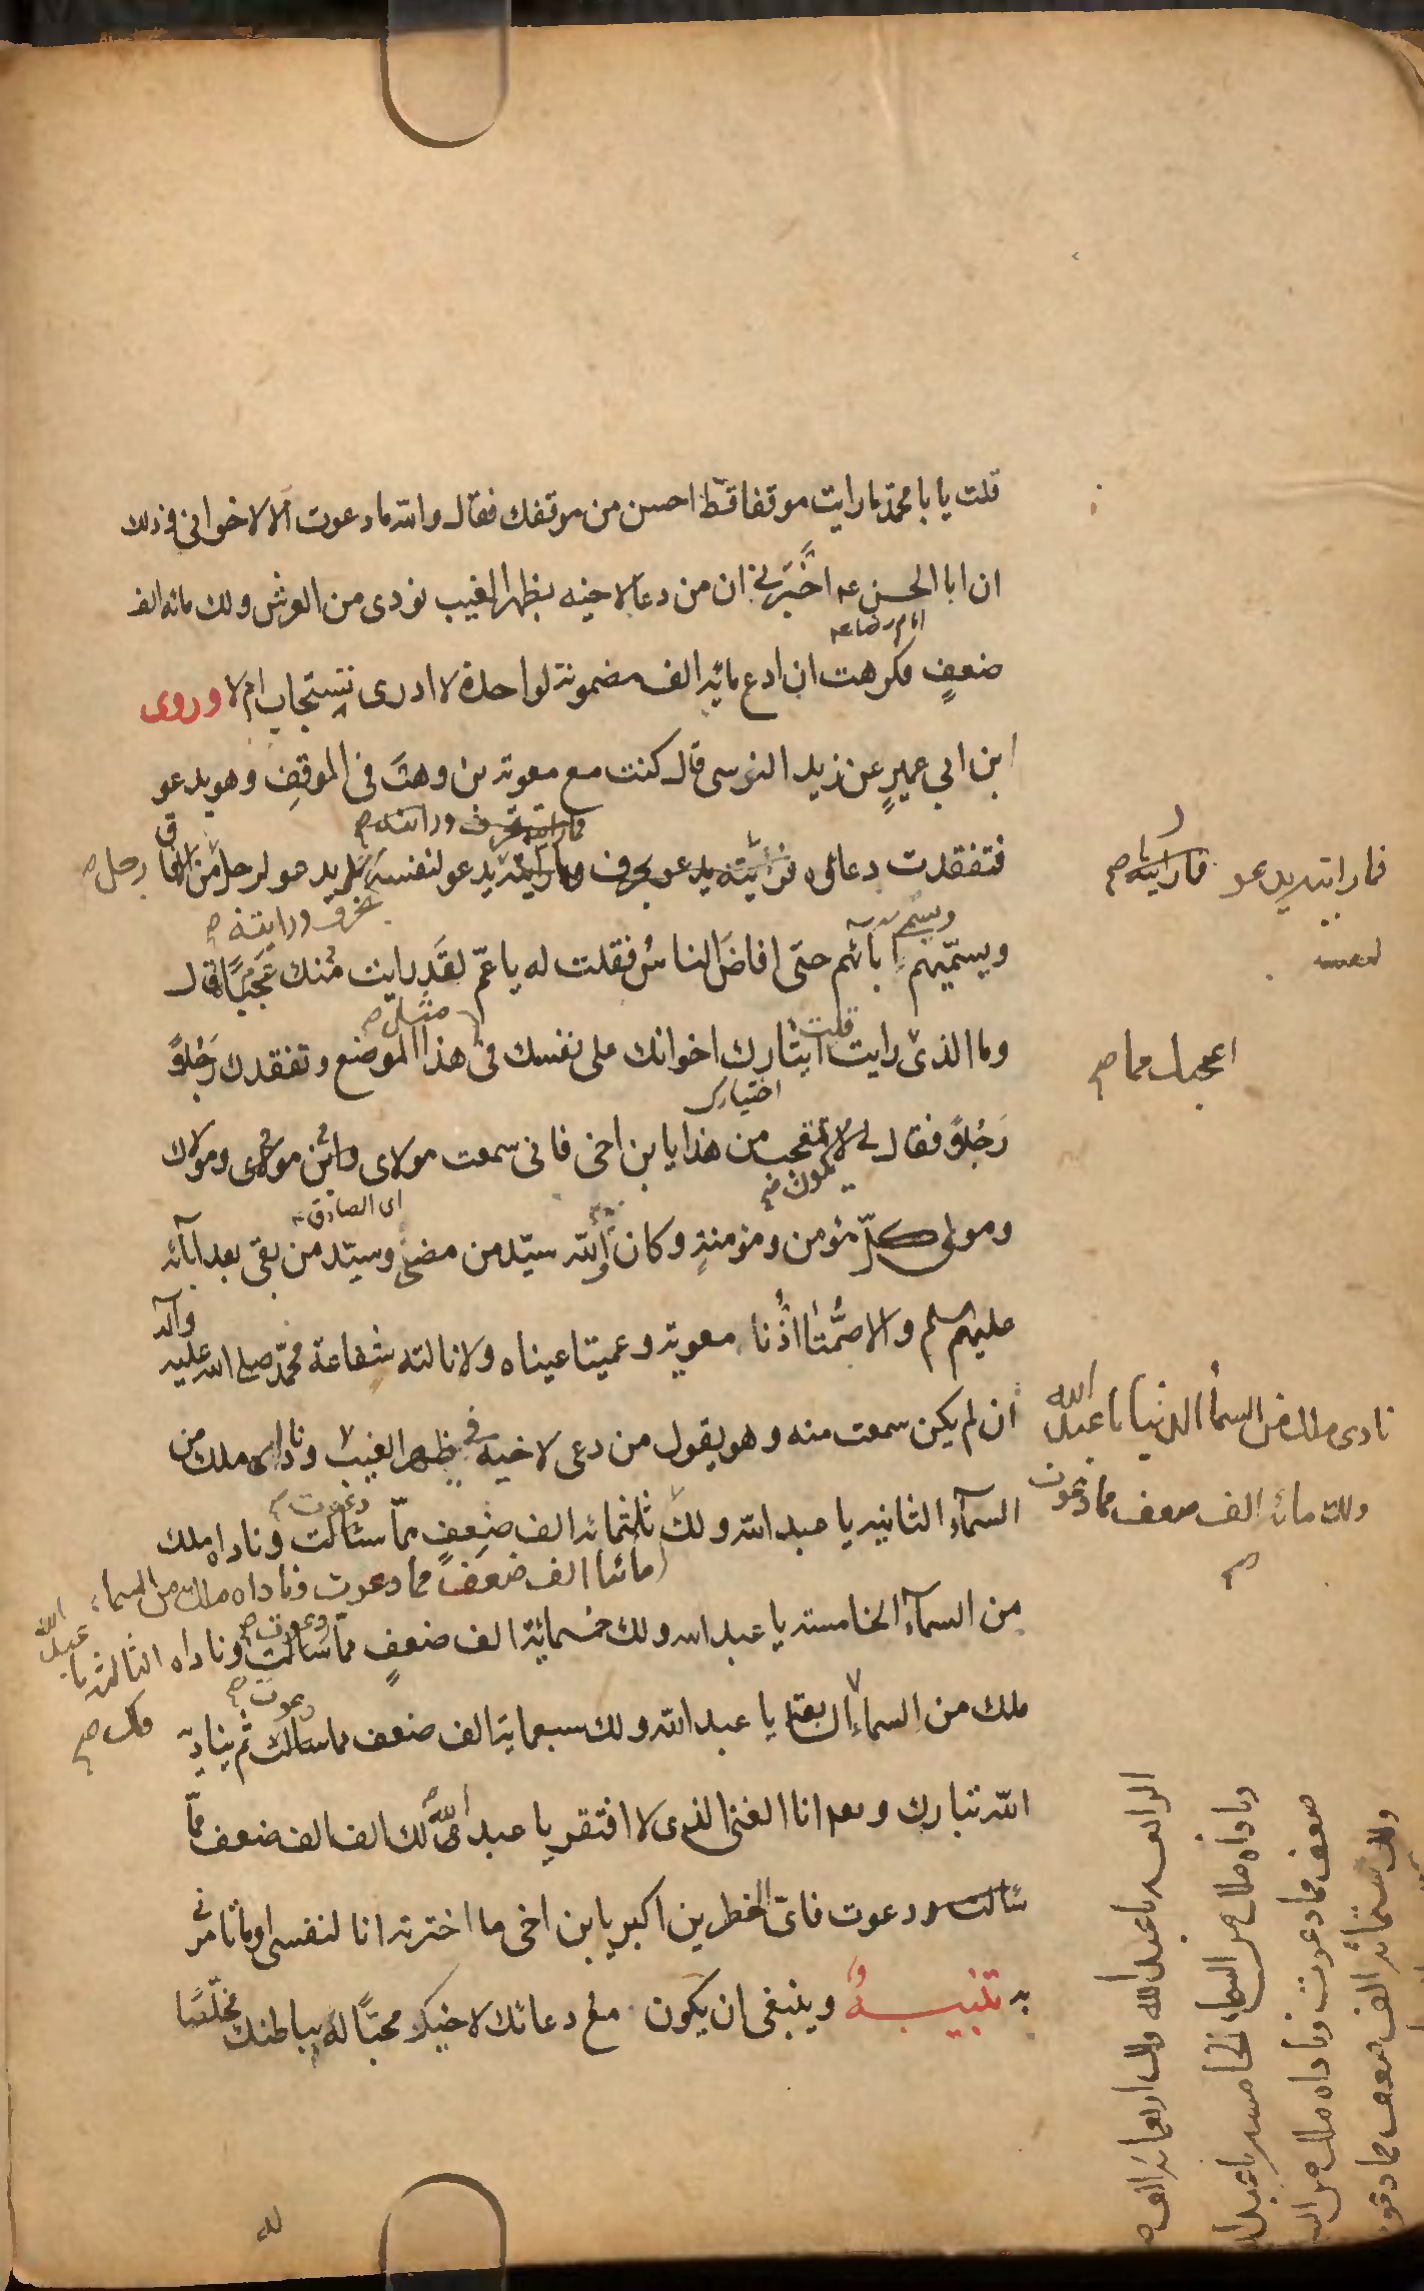 قلت يا با محمد ما رايت موقفا قط احسن من موقفك فقال والله ما دعوت الا لاخواني وذلك
ان ابا الحسن عه اخبرني ان من دعا لاخيه بظهر الغيب نودى من العرش ولك مائه الف
ضعف فكرهت ان ادع مائة الف مضمونة لواحدة لا ادرى تستجاب ام لا وروى
ابن ابي عمير عن زيد النرسى قال كنت مع معوية بن وهب فى الموقف وهو يدعو
فتفقدت دعائه فما رايته يدعو لنفسه بحرف ورايته يدعو لرجل رجل من الافاق
ويسميهم ويسمى آبائهم حتى افاض الناس فقلت له يا عم لقد رايت منك عجبا قال
وما الذى رايت قلت ايثارك اخوانك على نفسك فى مثل هذا الموضع وتفقدك رجلا
رجلا فقال لى لا تتعجب من هذا يا بن اخى فانى سمعت مولاى ومولاك
ومولى كل مؤمن ومؤمنة وكان والله سيد من مضى وسيد من بقى بعد آبائه
اى الصادق
عليهم السلم والا صمتا اذنا معوية وعميتا عيناه ولا نالته شفاعة محمد صلى الله عليه وآله
ان لم يكن سمعت منه وهو يقول من دعى لاخيه فى ظهر الغيب ناداه ملك من
السماء الثانيه يا عبد الله ولك ثلثمائه الف ضعف مما سئالت وناداه ملك
مائتا الف ضعف مما دعوت وناداه ملك من السماء
من السماء الخامسه يا عبد الله ولك خمسمائة الف ضعف مما سئالت وناداه
الثالثه يا عبد الله ولك
ملك من السماء السابعة يا عبد الله ولك سبعماية الف ضعف مما سئالت ثم يناديه
الله تبارك وتعه انا الغنى الذى لا افتقر يا عبد الله لك الف الف ضعف مما
سئالت دعوت فاى الخطرين اكبر يا بن اخى ما اخترته انا لنفسى او ما تامرنى
به تنبيه وينبغى ان يكون مع دعائك لاخيك محبا له بباطنك مخلصا
فما رايته يدعو
لنفسه
اعجبك مما
نادى ملك من السماء الدنيا يا عبد الله
ولك مائه الف ضعف مما دعوت
الرابعه يا عبد الله ولك اربعمائه الف
وناداه ملك من السماء الخامسه يا عبد الله
ضعف مما دعوت وناداه ملك من
ولك ستمائه الف ضعف مما دعوت